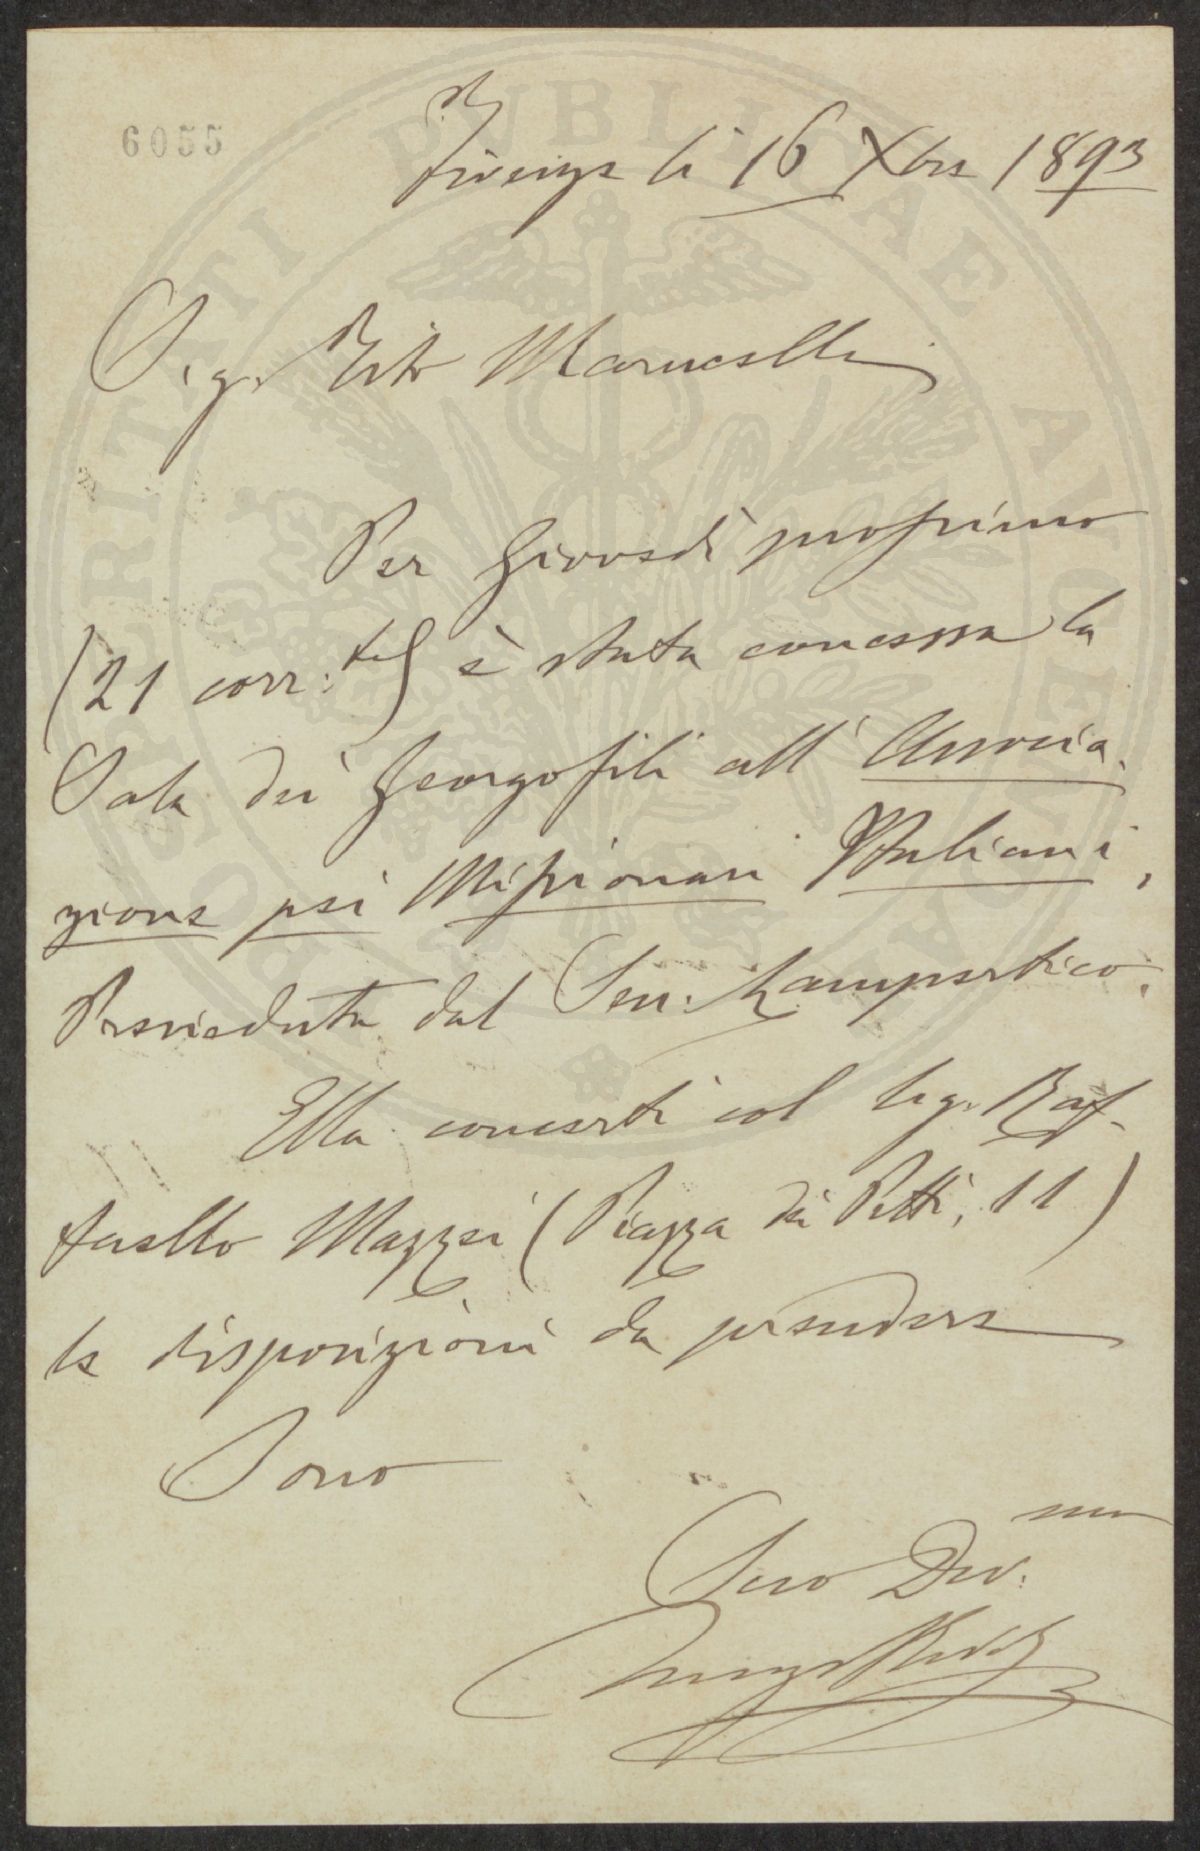 6055
Firenze li 16 Xbre 1893
Sig. Tito Marucelli
Per Giovedì prossimo
(21 corr:te) è stata concessa la
Sala dei Georgofili all'Associa.
zione pei Missionari Italiani,
Presieduta dal Sen. Lampertico.
Ella concerti col Sig. Raf-
faello Mazzei (Piazza dei Pitti, 11)
le disposizioni da prendere
Sono
Suo Dev:mo
PROSPERITATI PUBLICAE AUGENDAE